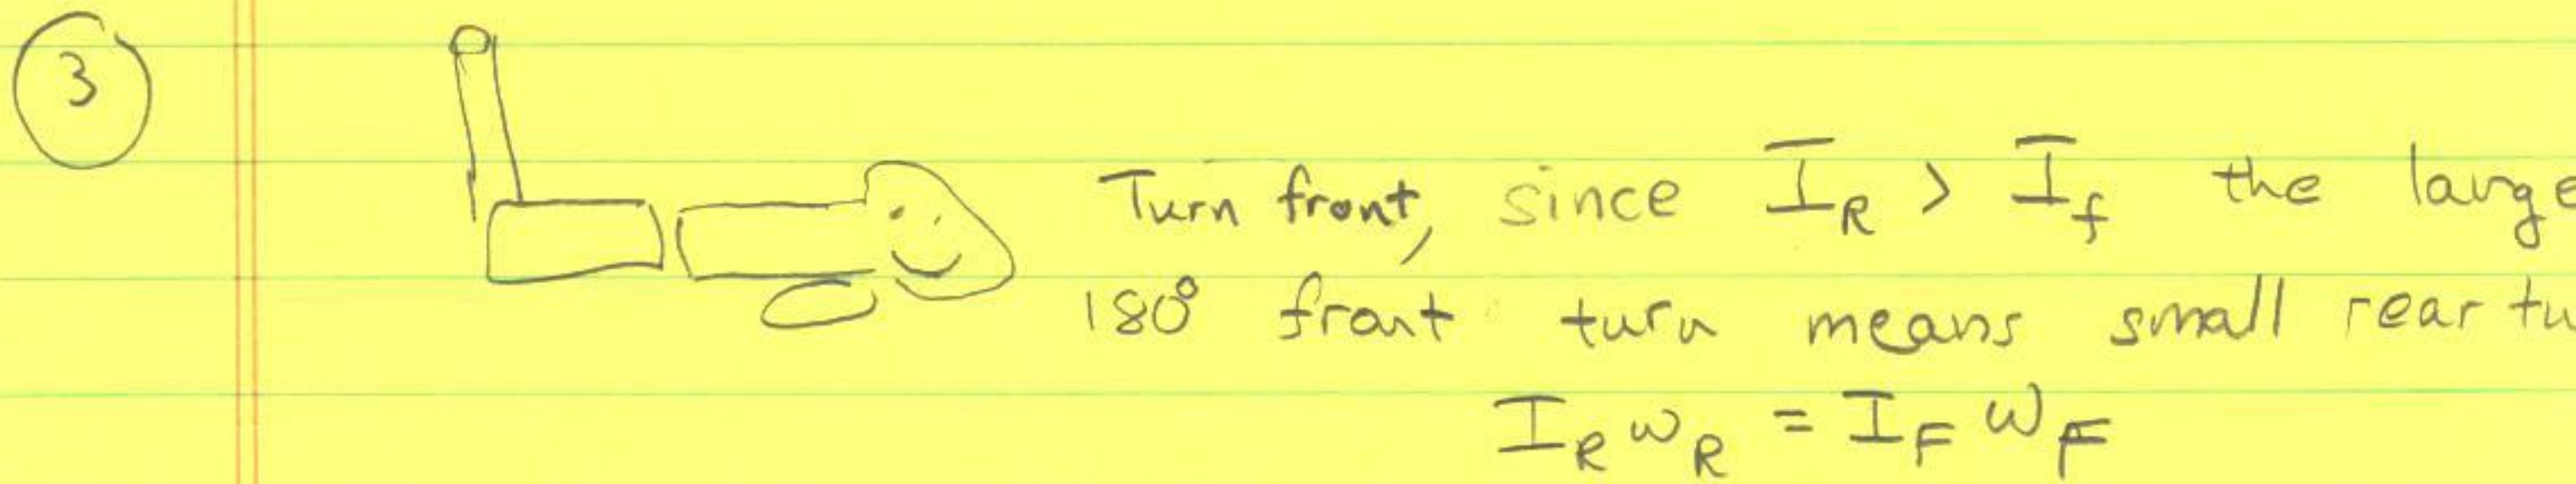 3
Turn front, since I_R > I_f the large
180° front turn means small rear tu
I_R ω_R = I_F ω_F